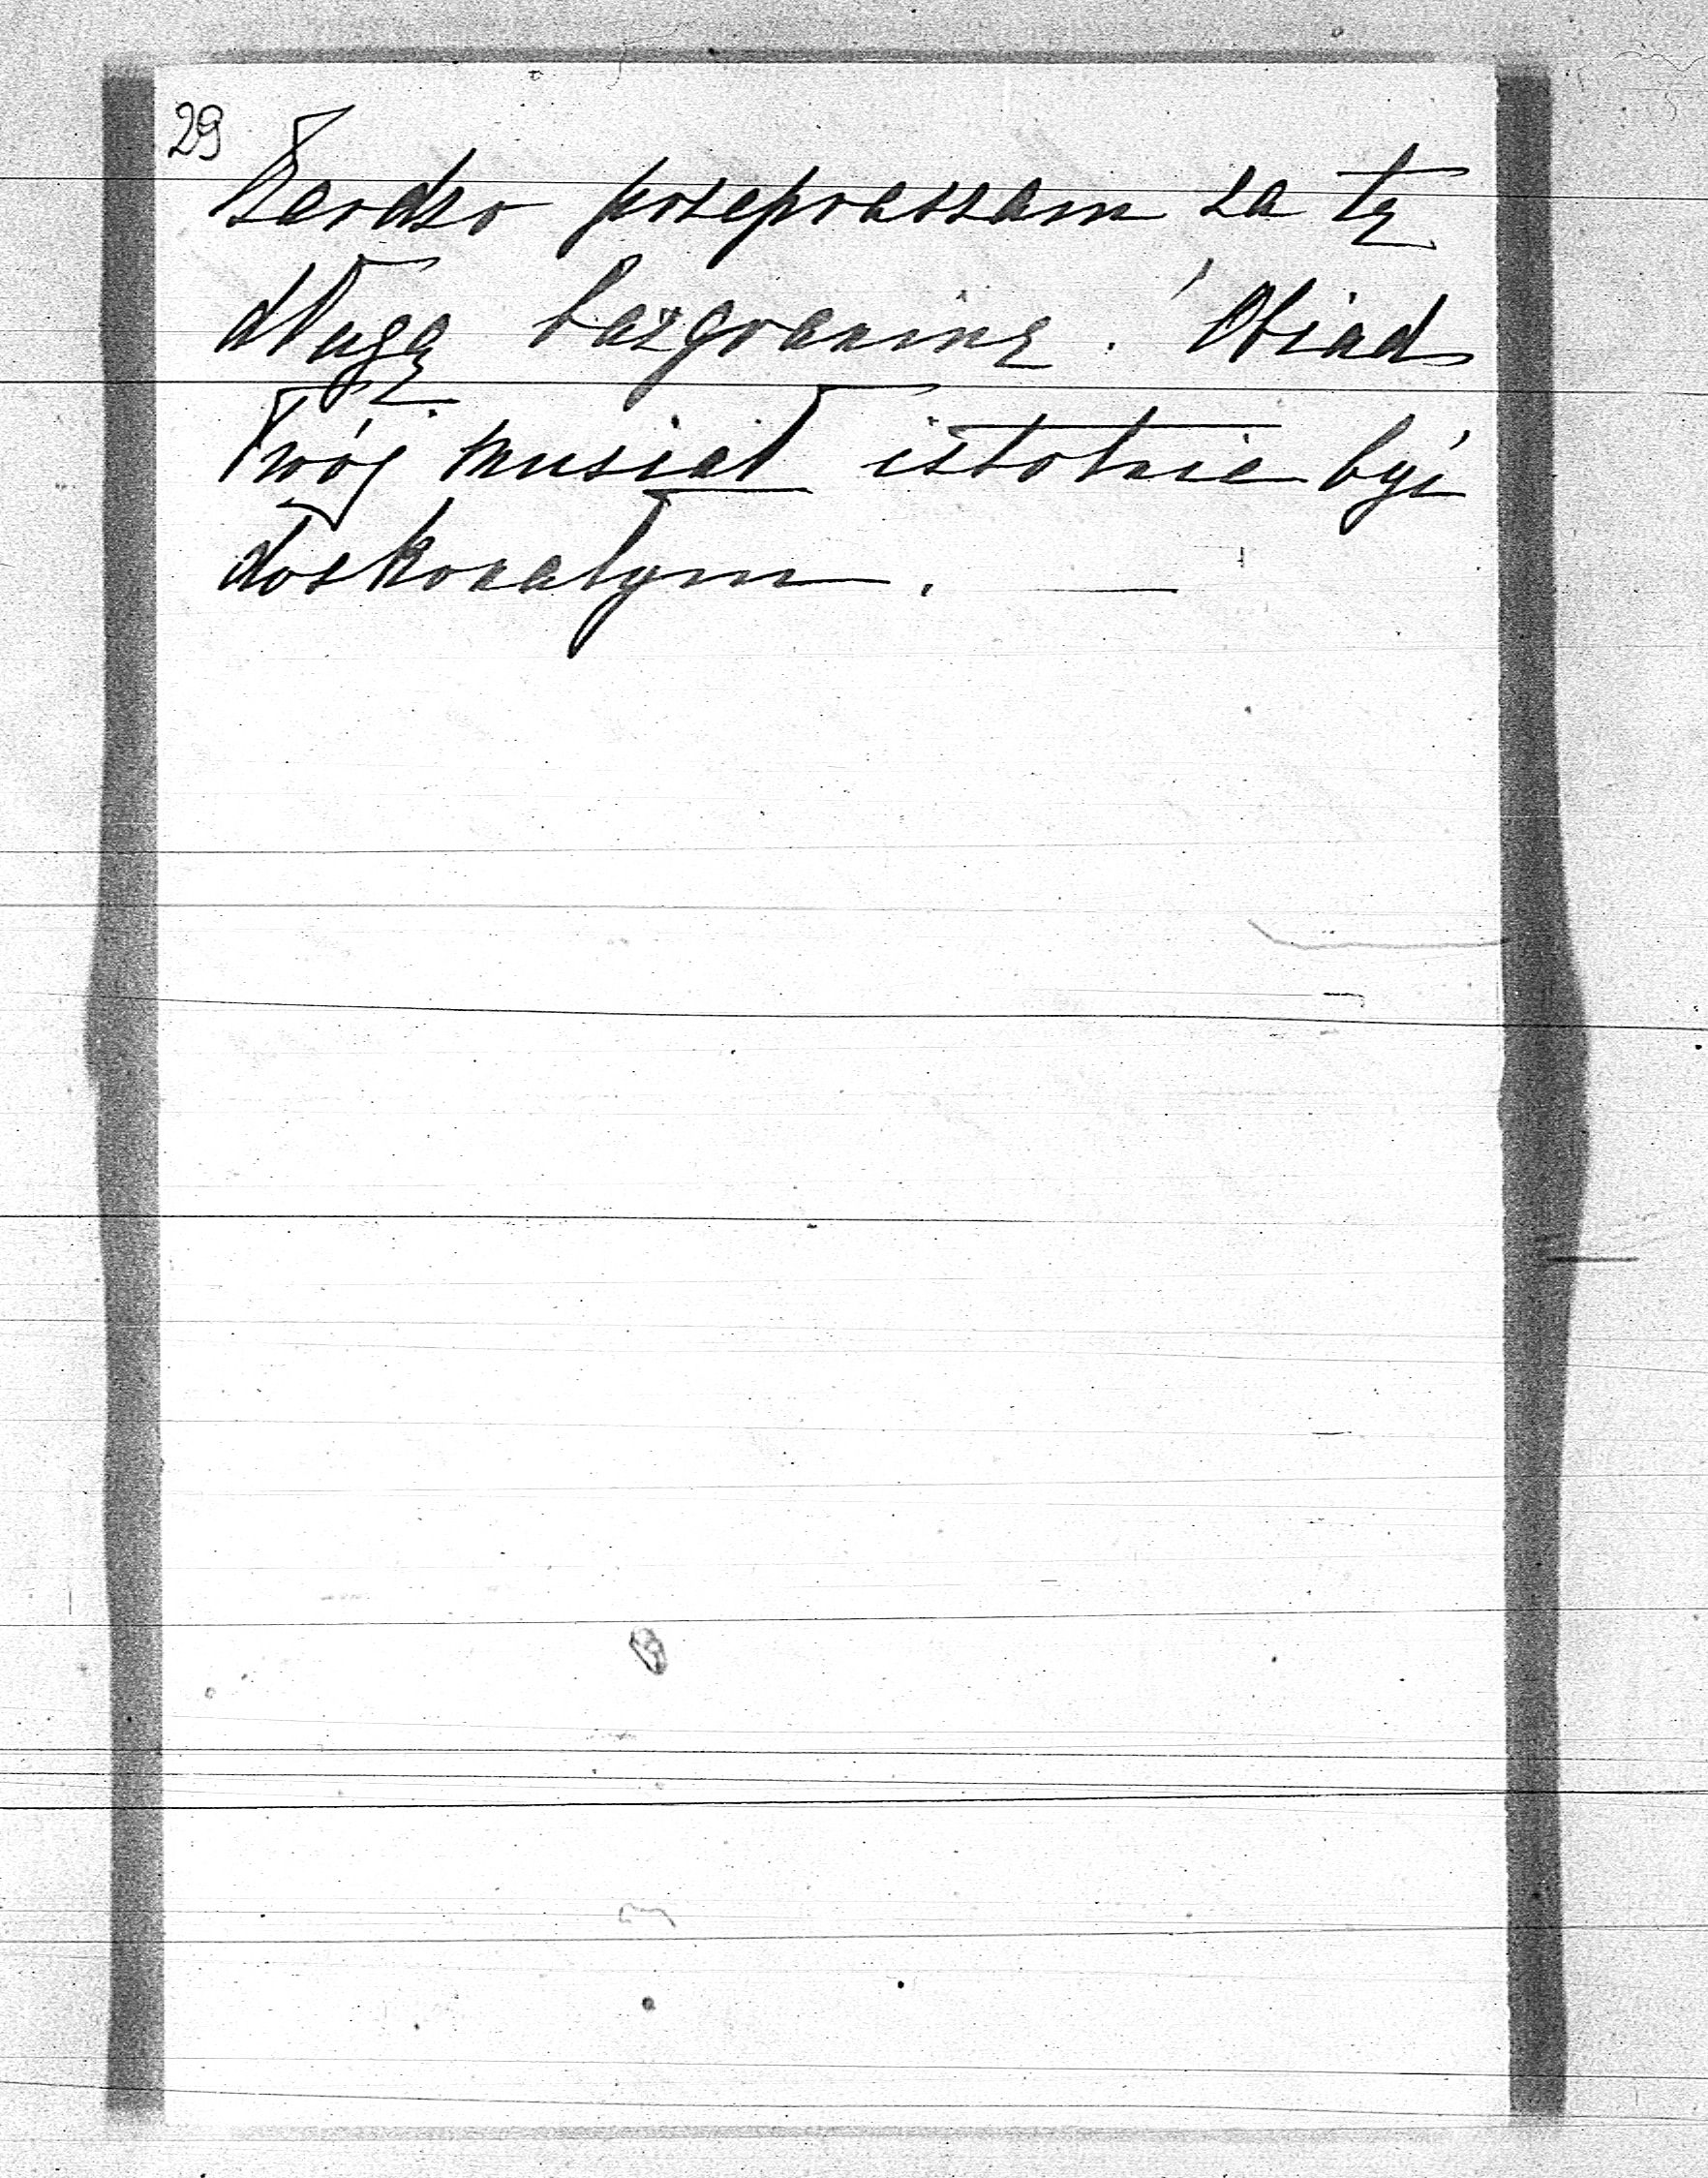 29
Bardzo przepraszam za tę
długą bazgraninę. Obiad
Twój musiał istotnie być
doskonałym. —